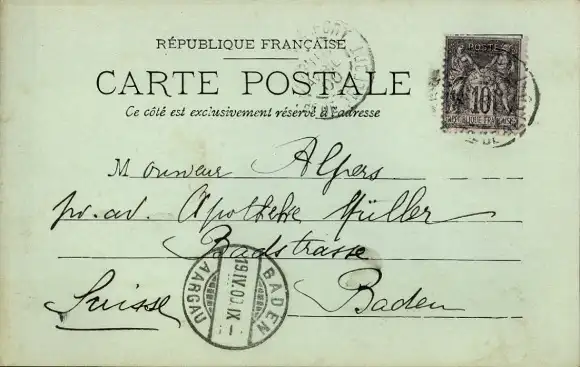 RÉPUBLIQUE FRANÇAISE
CARTE POSTALE
Ce côté est exclusivement réservé à l'adresse
POSTES
10
RÉPUBLIQUE FRANÇAISE
Monsieur Alpers
pr. ad. Apotheke Müller
Badstrasse
Suisse Baden
BADEN
19.IV.00.IX-
AARGAU